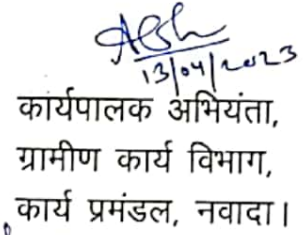 13/04/2023
कार्यपालक अभियंता,
ग्रामीण कार्य विभाग,
कार्य प्रमंडल, नवादा।